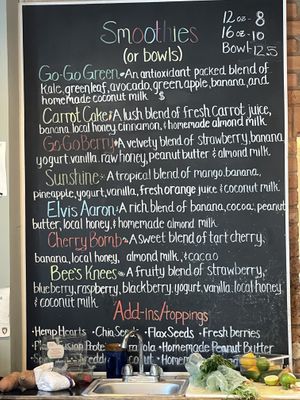 Smoothies
(or bowls)
12oz - 8
16oz - 10
Bowl - 12.5
Go-Go Green • An antioxidant packed blend of
Kale, green leaf, avocado, green apple, banana, and
homemade coconut milk $
Carrot Cake • A lush blend of fresh Carrot juice,
banana, local honey, cinnamon, & homemade almond milk.
Go Go Berry • A velvety blend of strawberry, banana
yogurt vanilla, raw honey, peanut butter & almond milk.
Sunshine • A tropical blend of mango, banana,
pineapple, yogurt, vanilla, fresh orange juice & coconut milk.
Elvis Aaron • A rich blend of banana, cocoa, peanut
butter, local honey, & homemade almond milk
Cherry Bomb • A sweet blend of tart cherry,
banana, local honey, almond milk, & cacao
Bee's Knees • A fruity blend of strawberry,
blueberry, raspberry, blackberry, yogurt, vanilla, local honey
& coconut milk.
Add-ins/toppings
• Hemp Hearts • Chia Seeds • Flax Seeds • Fresh berries
• Homemade Peanut Butter